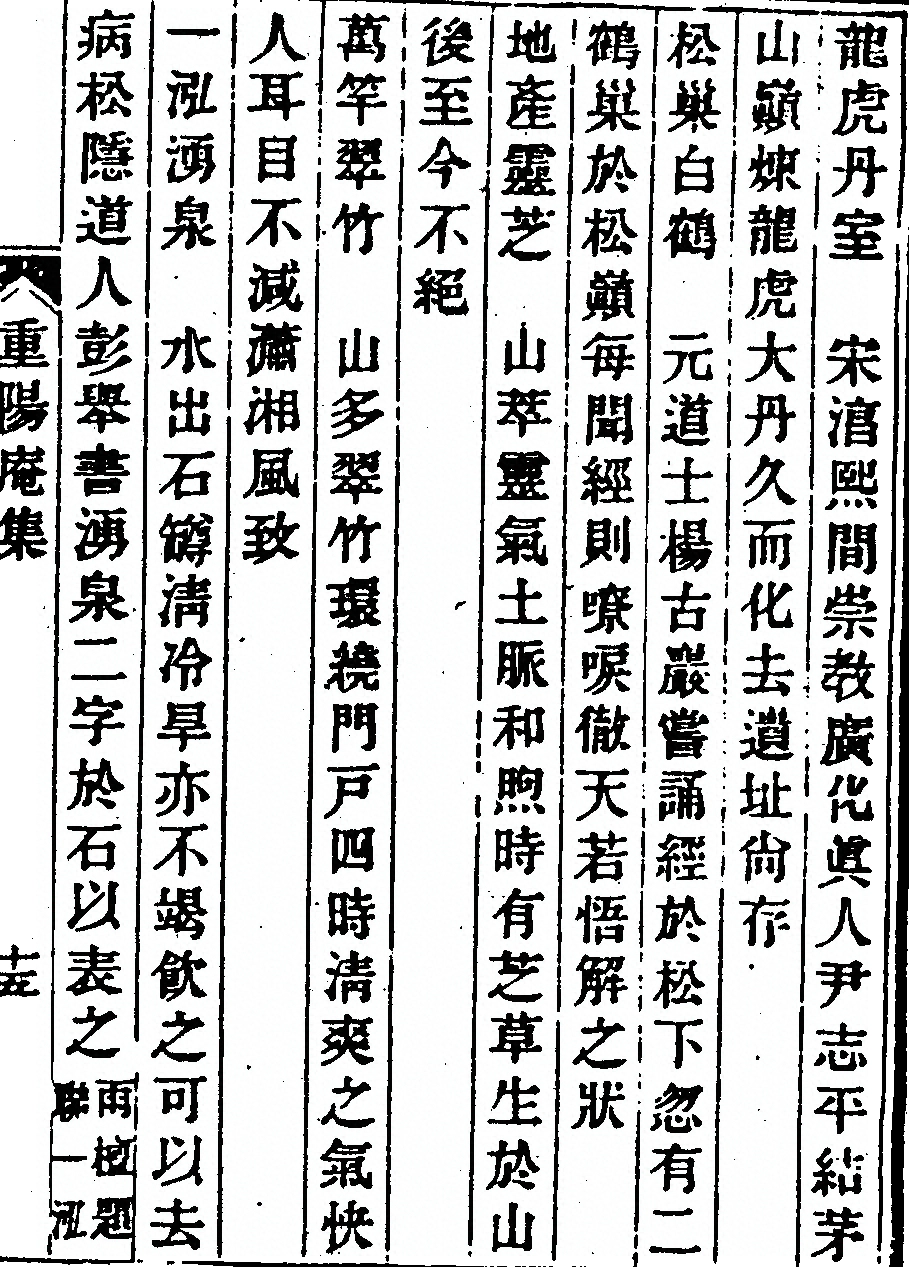 龍虎丹室　宋淳熙間崇教廣化眞人尹志平結茅
山巔煉龍虎大丹久而化去遺址尙存
松巢白鶴　元道士楊古嚴嘗誦經於松下忽有二
鶴巢於松巔每聞經則嘹唳徹天若悟解之狀
地產靈芝　山萃靈氣土脈和煦時有芝草生於山
後至今不絕
萬竿翠竹　山多翠竹環繞門戸四時淸爽之氣快
人耳目不減瀟湘風致
一泓湧泉　水出石罅淸冷旱亦不竭飮之可以去
病松隱道人彭舉書湧泉二字於石以表之
兩楹題
聯一泓
重陽庵集
十五